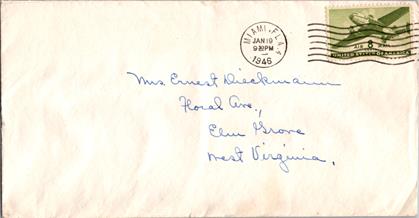 MIAMI, FLA.
JAN 19
9 30 PM
1946
AIR 8¢ MAIL
UNITED STATES OF AMERICA
Mrs. Ernest Dieckmann
Floral Ave.,
Elm Grove
West Virginia.